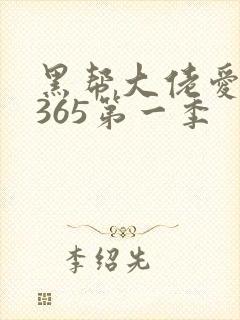 黑帮大佬爱
365第一季
李绍先